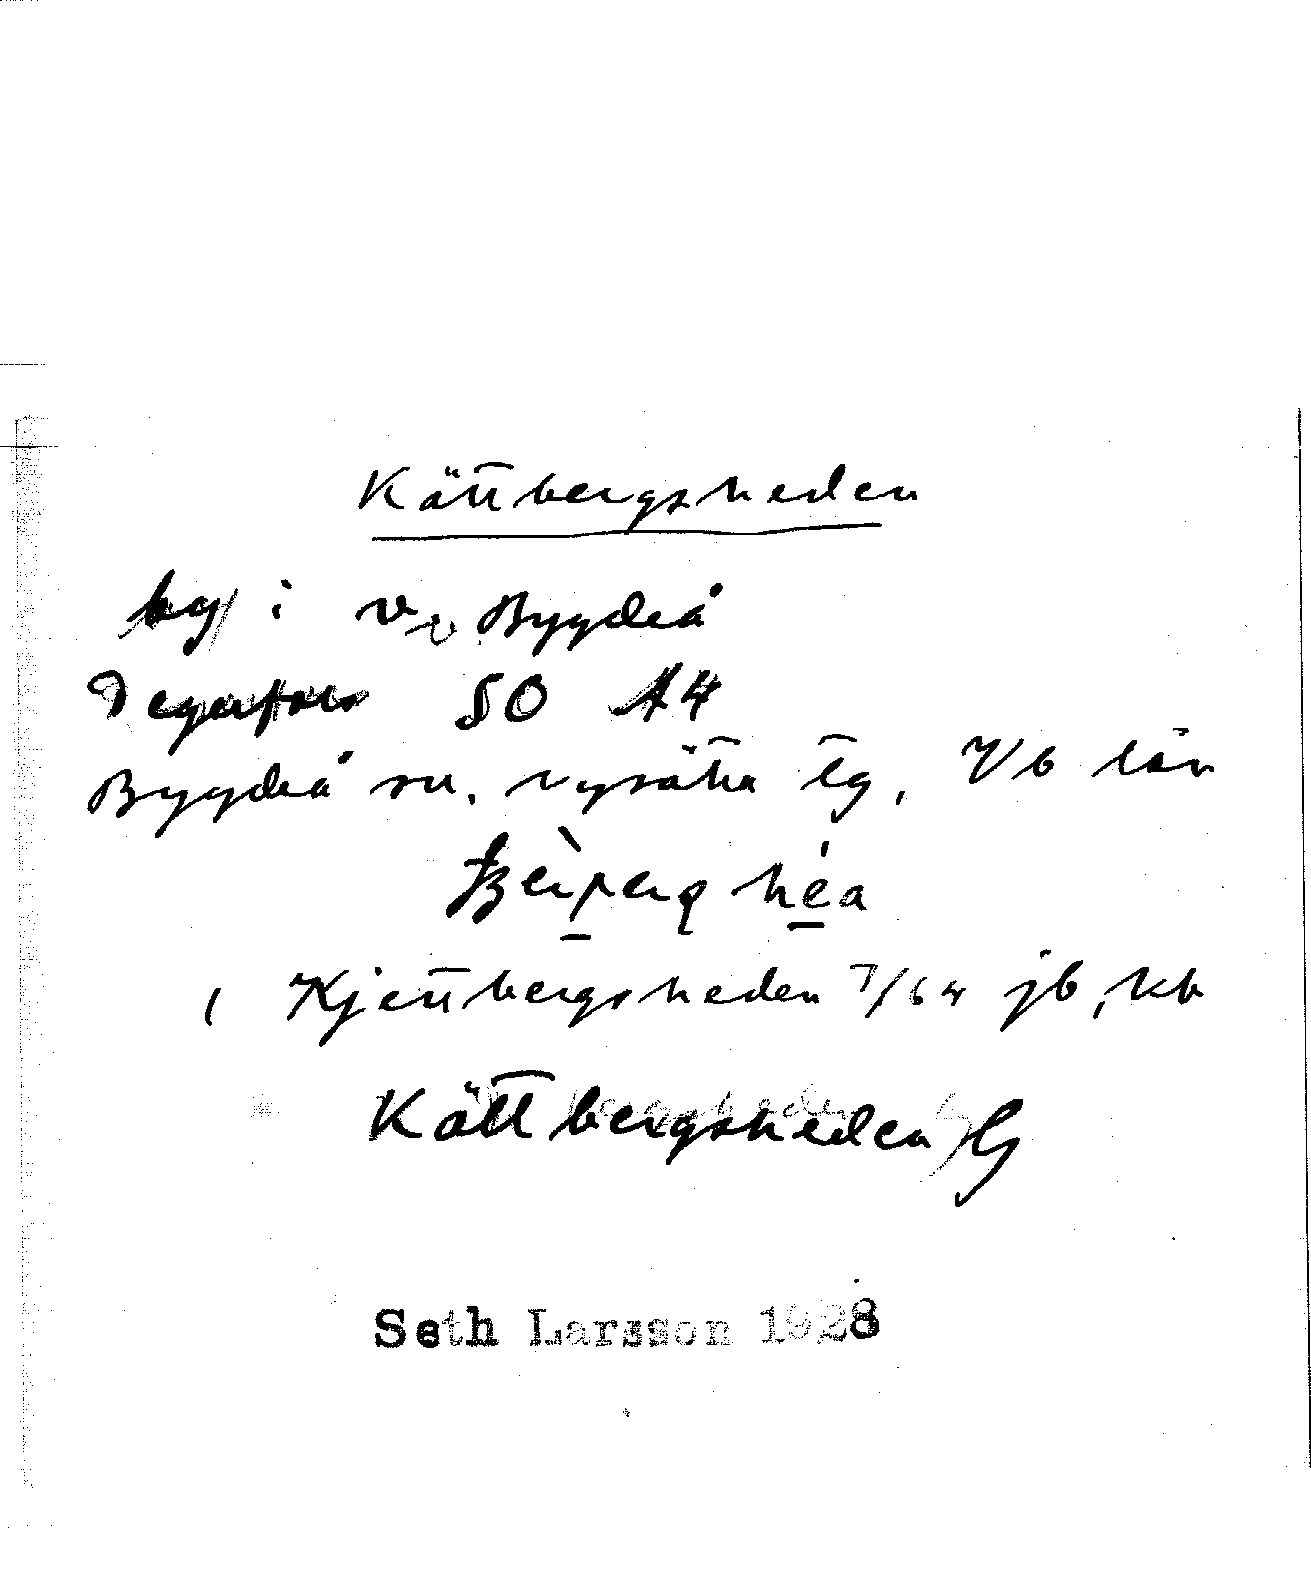 Kättbergsheden
by i v. Bygdeå
Degerfors SO A4
Bygdeå sn, nysätra tg, Vb län
Kjettbergsheden 7/64 jb, kb
Kättbergsheden G
Seth Larsson 1928